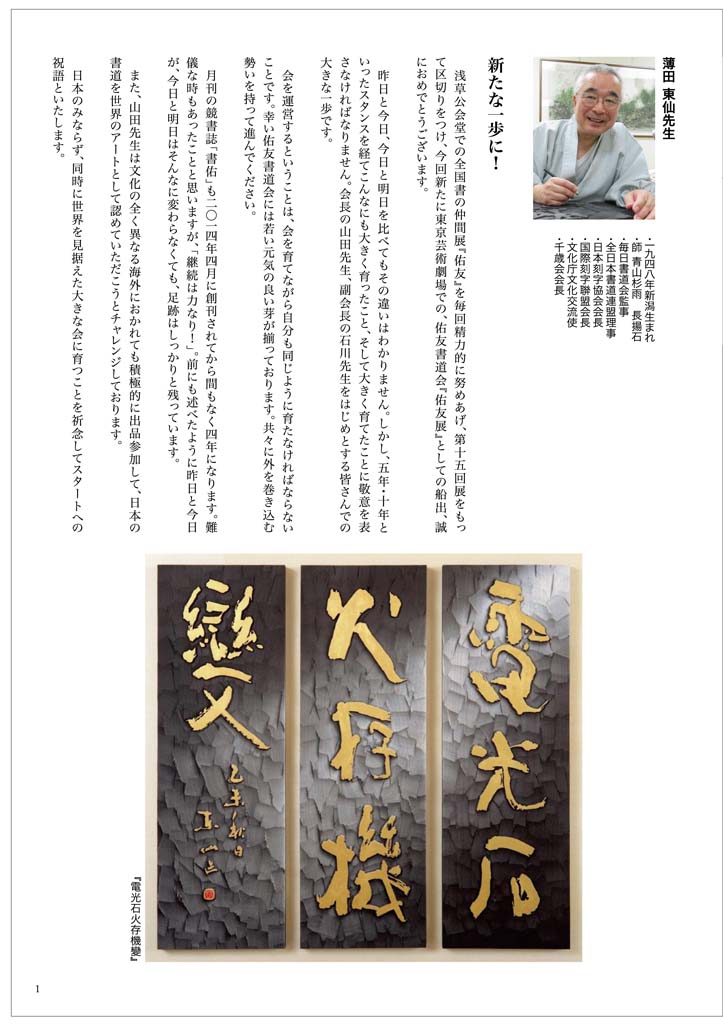 薄田 東仙先生
・一九四八年新潟生まれ
・師 青山杉雨 長揚石
・毎日書道会監事
・全日本書道連盟理事
・日本刻字協会会長
・国際刻字聯盟会長
・文化庁文化交流使
・千歳会会長
新たな一歩に！
浅草公会堂での全国書の仲間展『佑友』を毎回精力的に努めあげ、第十五回展をもっ
て区切りをつけ、今回新たに東京芸術劇場での、佑友書道会『佑友展』としての船出、誠
におめでとうございます。
昨日と今日、今日と明日を比べてもその違いはわかりません。しかし、五年・十年と
いったスタンスを経てこんなにも大きく育ったこと、そして大きく育てたことに敬意を表
さなければなりません。会長の山田先生、副会長の石川先生をはじめとする皆さんでの
大きな一歩です。
会を運営するということは、会を育てながら自分も同じように育たなければならない
ことです。幸い佑友書道会には若い元気の良い芽が揃っております。共々に外を巻き込む
勢いを持って進んでください。
月刊の競書誌「書佑」も二〇一四年四月に創刊されてから間もなく四年になります。難
儀な時もあったことと思いますが、「継続は力なり！」。前にも述べたように昨日と今日
が、今日と明日はそんなに変わらなくても、足跡はしっかりと残っています。
また、山田先生は文化の全く異なる海外におかれても積極的に出品参加して、日本の
書道を世界のアートとして認めていただこうとチャレンジしております。
日本のみならず、同時に世界を見据えた大きな会に育つことを祈念してスタートへの
祝語といたします。
電光石
火存機
變
乙未新日
東仙
『電光石火存機變』
1